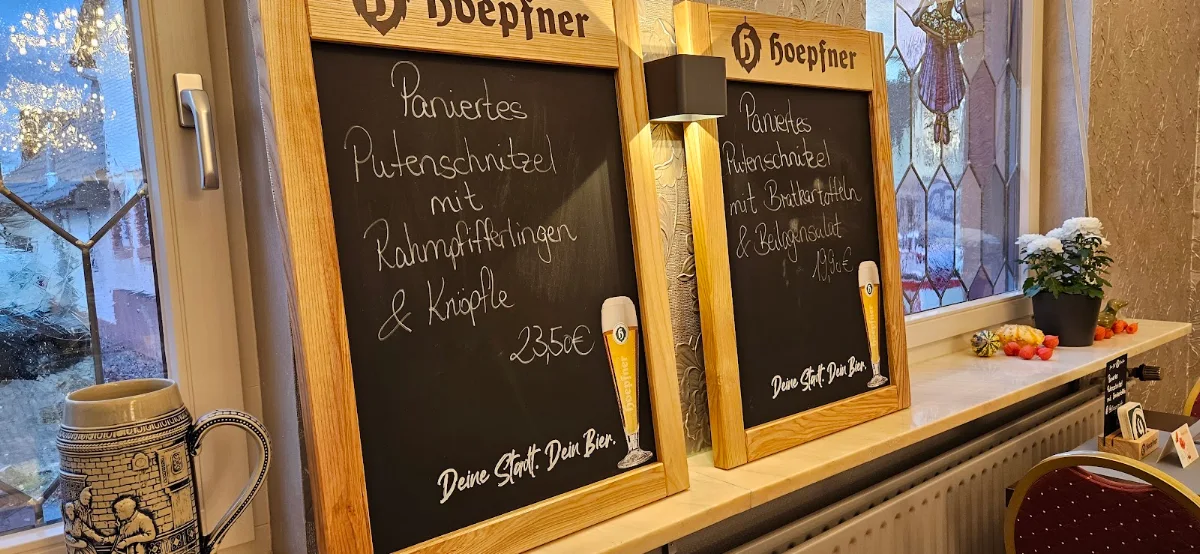 Hoepfner
Paniertes
Putenschnitzel
mit
Rahmpfifferlingen
& Knöpfle
23,50€
Hoepfner
Deine Stadt. Dein Bier.
Hoepfner
Paniertes
Putenschnitzel
mit Bratkartoffeln
& Beilagensalat
19,90€
Deine Stadt. Dein Bier.